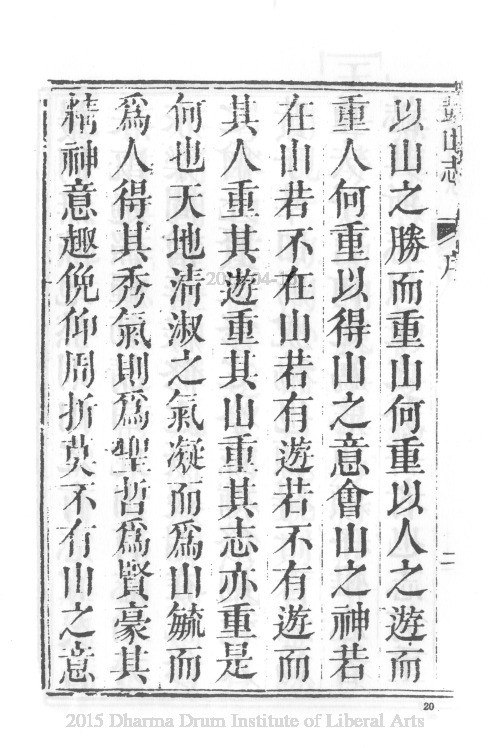 山志
序
二
以山之勝而重山何重以人之遊而
重人何重以得山之意會山之神若
在山若不在山若有遊若不有遊而
其人重其遊重其山重其志亦重是
何也天地清淑之氣凝而爲山毓而
爲人得其秀氣則爲聖哲爲賢豪其
精神意趣俛仰周折莫不有山之意
20
2015 Dharma Drum Institute of Liberal Arts